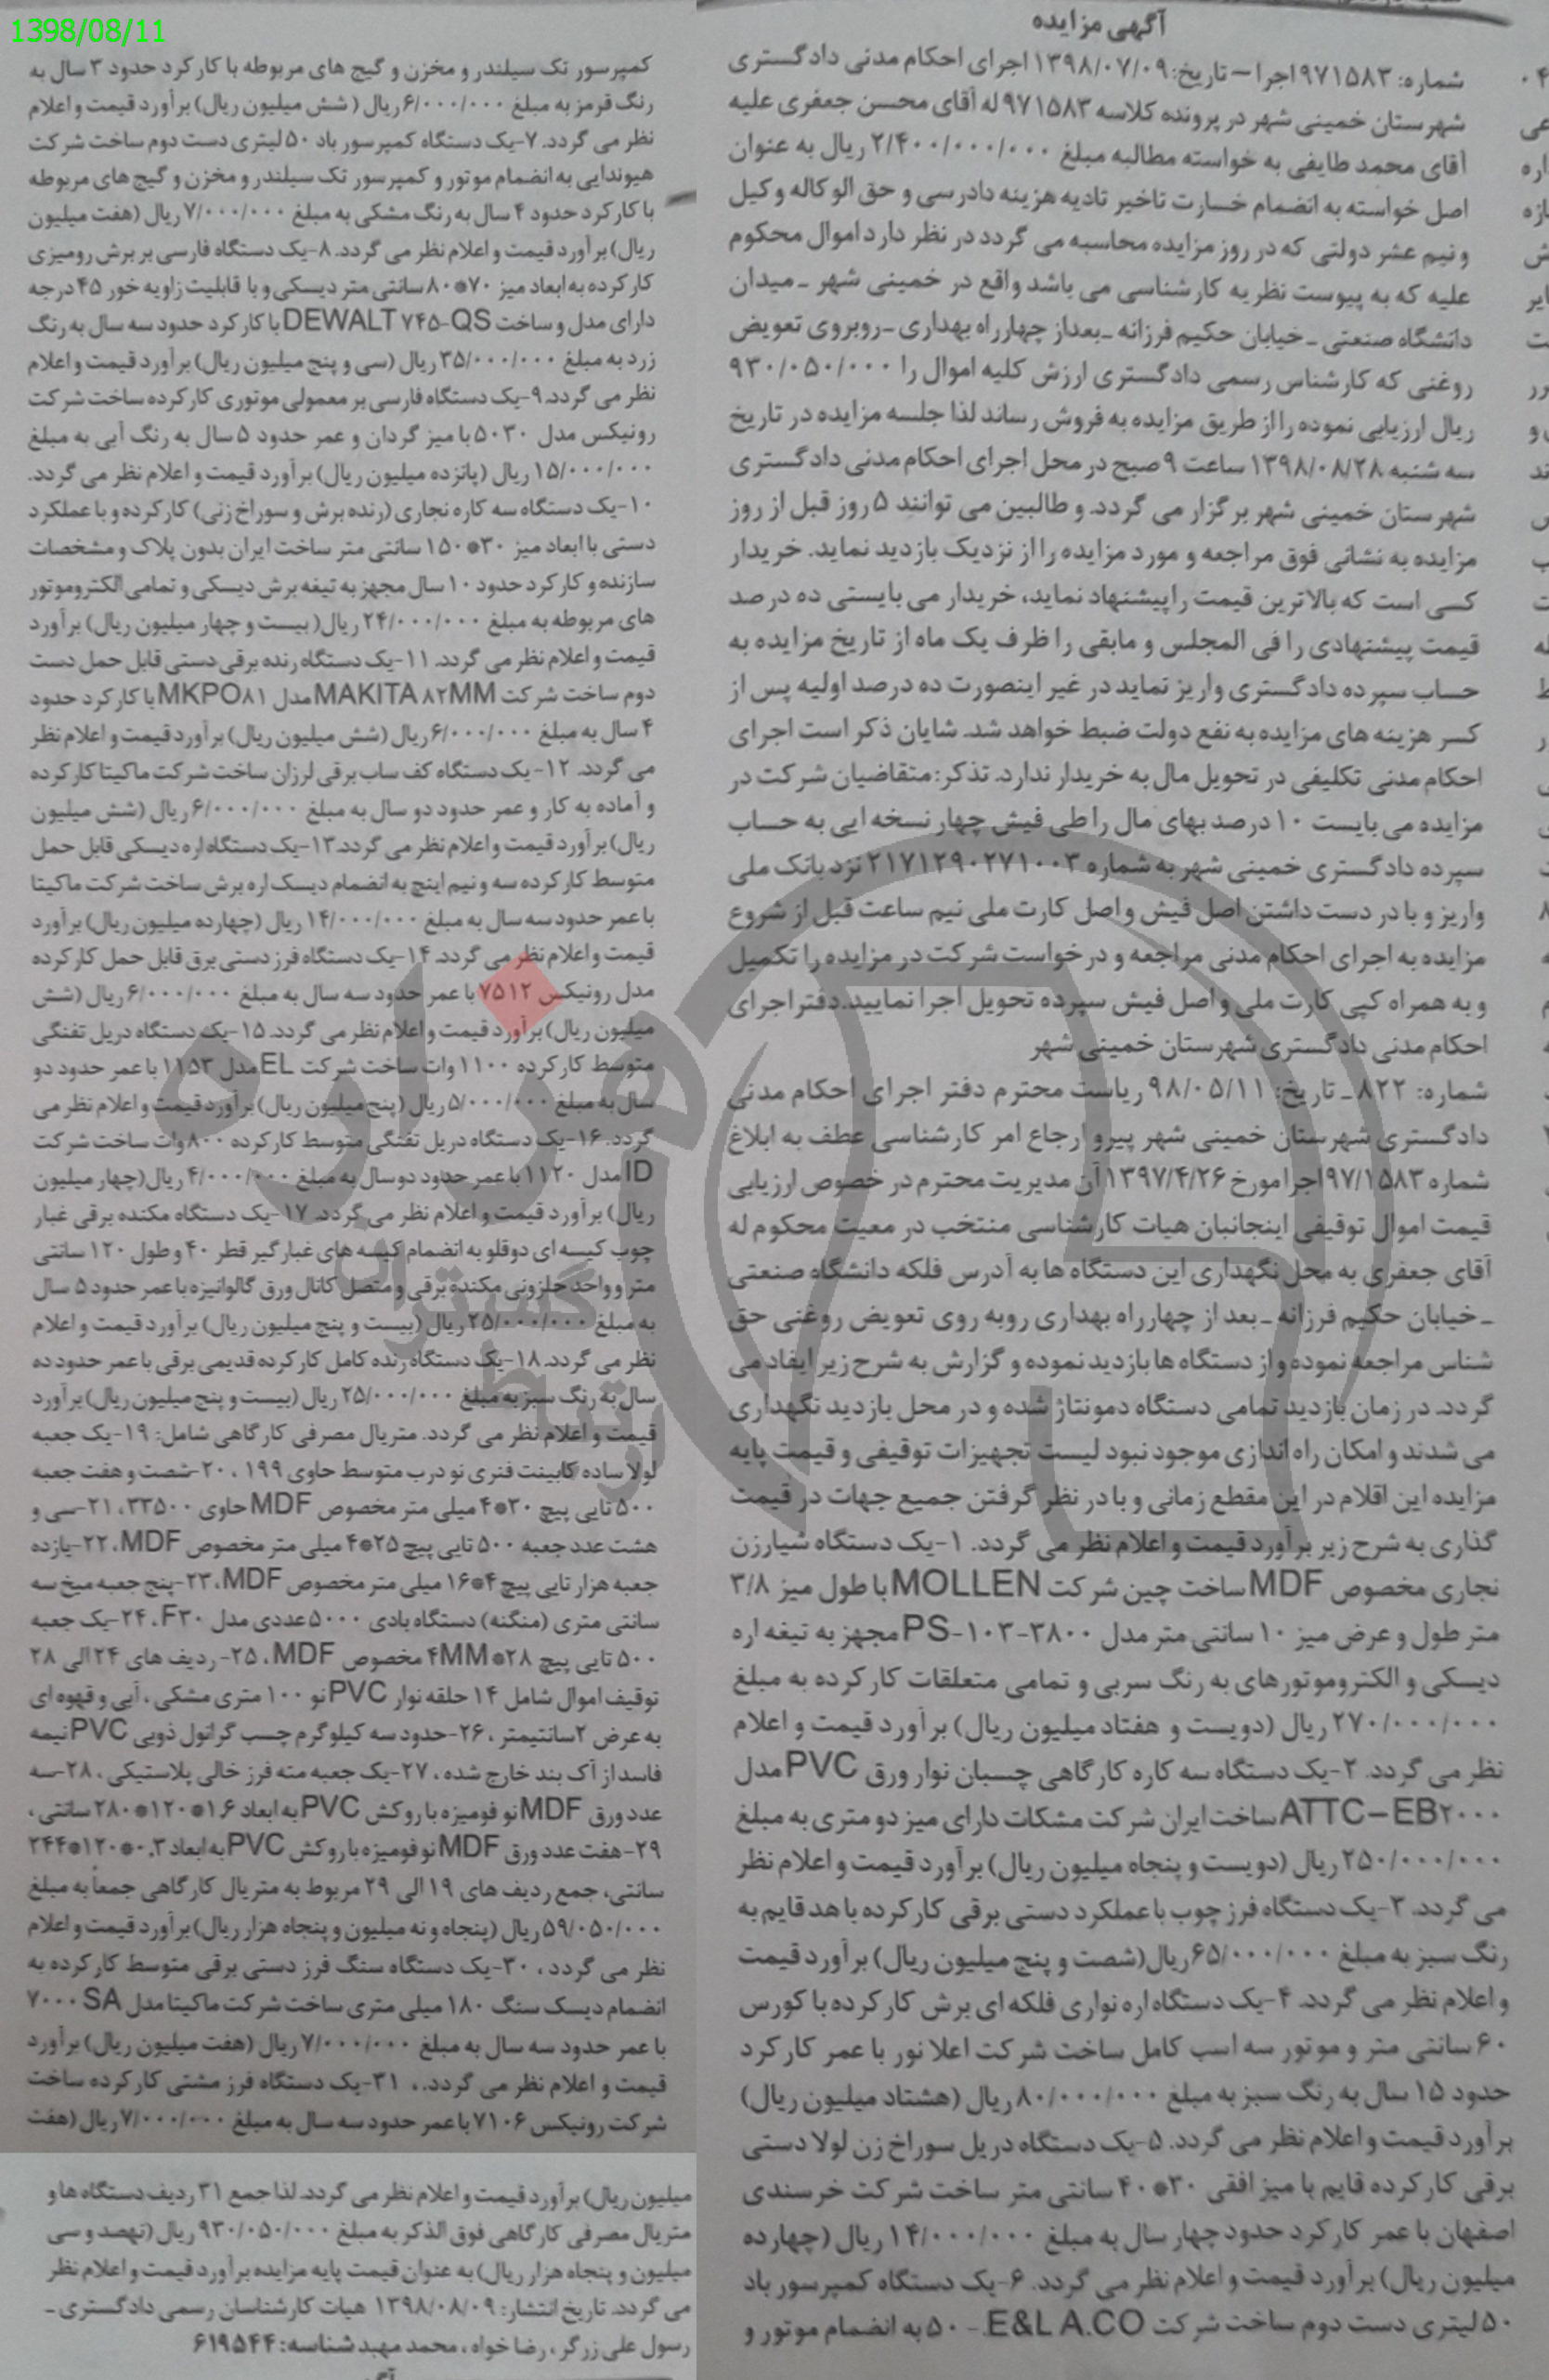 1398/08/11
آگهی مزایده
شماره: ۹۷۱۵۸۳اجرا – تاریخ: ۱۳۹۸/۰۷/۰۹ اجرای احکام مدنی دادگستری
شهرستان خمینی شهر در پرونده کلاسه ۹۷۱۵۸۳ له آقای محسن جعفری علیه
آقای محمد طایفی به خواسته مطالبه مبلغ ۲/۴۰۰/۰۰۰/۰۰۰ ریال به عنوان
اصل خواسته به انضمام خسارت تاخیر تادیه هزینه دادرسی و حق الوکاله وکیل
و نیم عشر دولتی که در روز مزایده محاسبه می گردد در نظر دارد اموال محکوم
علیه که به پیوست نظریه کارشناسی می باشد واقع در خمینی شهر – میدان
دانشگاه صنعتی – خیابان حکیم فرزانه –بعداز چهارراه بهداری –روبروی تعویض
روغنی که کارشناس رسمی دادگستری ارزش کلیه اموال را ۹۳۰/۰۵۰/۰۰۰
ریال ارزیابی نموده را از طریق مزایده به فروش رساند لذا جلسه مزایده در تاریخ
سه شنبه ۱۳۹۸/۰۸/۲۸ ساعت ۹ صبح در محل اجرای احکام مدنی دادگستری
شهرستان خمینی شهر برگزار می گردد. و طالبین می توانند ۵ روز قبل از روز
مزایده به نشانی فوق مراجعه و مورد مزایده را از نزدیک بازدید نماید. خریدار
کسی است که بالاترین قیمت را پیشنهاد نماید، خریدار می بایستی ده درصد
قیمت پیشنهادی را فی المجلس و مابقی را ظرف یک ماه از تاریخ مزایده به
حساب سپرده دادگستری واریز نماید در غیر اینصورت ده درصد اولیه پس از
کسر هزینه های مزایده به نفع دولت ضبط خواهد شد. شایان ذکر است اجرای
احکام مدنی تکلیفی در تحویل مال به خریدار ندارد. تذکر: متقاضیان شرکت در
مزایده می بایست ۱۰ درصد بهای مال را طی فیش چهار نسخه ایی به حساب
سپرده دادگستری خمینی شهر به شماره ۲۱۷۱۲۹۰۲۷۱۰۰۳ نزد بانک ملی
واریز و با در دست داشتن اصل فیش و اصل کارت ملی نیم ساعت قبل از شروع
مزایده به اجرای احکام مدنی مراجعه و درخواست شرکت در مزایده را تکمیل
و به همراه کپی کارت ملی و اصل فیش سپرده تحویل اجرا نمایید.دفتر اجرای
احکام مدنی دادگستری شهرستان خمینی شهر
شماره: ۸۲۲ – تاریخ: ۹۸/۰۵/۱۱ ریاست محترم دفتر اجرای احکام مدنی
دادگستری شهرستان خمینی شهر پیرو ارجاع امر کارشناسی عطف به ابلاغ
شماره ۹۷/۱۵۸۳اجرا مورخ ۱۳۹۷/۴/۲۶ آن مدیریت محترم در خصوص ارزیابی
قیمت اموال توقیفی اینجانبان هیات کارشناسی منتخب در معیت محکوم له
آقای جعفری به محل نگهداری این دستگاه ها به آدرس فلکه دانشگاه صنعتی
– خیابان حکیم فرزانه –بعد از چهارراه بهداری روبه روی تعویض روغنی حق
شناس مراجعه نموده و از دستگاه ها بازدید نموده و گزارش به شرح زیر ایفاد می
گردد. در زمان بازدید تمامی دستگاه دمونتاژ شده و در محل بازدید نگهداری
می شدند و امکان راه اندازی موجود نبود لیست تجهیزات توقیفی و قیمت پایه
مزایده این اقلام در این مقطع زمانی و با در نظر گرفتن جمیع جهات در قیمت
گذاری به شرح زیر برآورد قیمت و اعلام نظر می گردد. ۱-یک دستگاه شیارزن
نجاری مخصوص MDF ساخت چین شرکت MOLLEN با طول میز ۳/۸
متر طول و عرض میز ۱۰ سانتی متر مدل PS-۱۰۳-۳۸۰۰ مجهز به تیغه اره
دیسکی و الکتروموتورهای به رنگ سربی و تمامی متعلقات کارکرده به مبلغ
۲۷۰/۰۰۰/۰۰۰ ریال (دویست و هفتاد میلیون ریال) برآورد قیمت و اعلام
نظر می گردد. ۲-یک دستگاه سه کاره کارگاهی چسبان نوار ورق PVC مدل
ATTC–EB۲۰۰۰ ساخت ایران شرکت مشکات دارای میز دو متری به مبلغ
۲۵۰/۰۰۰/۰۰۰ ریال (دویست و پنجاه میلیون ریال) برآورد قیمت و اعلام نظر
می گردد. ۳-یک دستگاه فرز چوب با عملکرد دستی برقی کارکرده با هد قایم به
رنگ سبز به مبلغ ۶۵/۰۰۰/۰۰۰ریال(شصت و پنج میلیون ریال) برآورد قیمت
و اعلام نظر می گردد. ۴-یک دستگاه اره نواری فلکه ای برش کارکرده با کورس
۶۰ سانتی متر و موتور سه اسب کامل ساخت شرکت اعلا نور با عمر کارکرد
حدود ۱۵ سال به رنگ سبز به مبلغ ۸۰/۰۰۰/۰۰۰ ریال (هشتاد میلیون ریال)
برآورد قیمت و اعلام نظر می گردد. ۵-یک دستگاه دریل سوراخ زن لولا دستی
برقی کارکرده قایم با میز افقی ۳۰*۴۰ سانتی متر ساخت شرکت خرسندی
اصفهان با عمر کارکرد حدود چهار سال به مبلغ ۱۴/۰۰۰/۰۰۰ ریال (چهارده
میلیون ریال) برآورد قیمت و اعلام نظر می گردد. ۶-یک دستگاه کمپرسور باد
۵۰ لیتری دست دوم ساخت شرکت E&L A.CO. - ۵۰ به انضمام موتور و
کمپرسور تک سیلندر و مخزن و گیج های مربوطه با کارکرد حدود ۳ سال به
رنگ قرمز به مبلغ ۶/۰۰۰/۰۰۰ریال (شش میلیون ریال) برآورد قیمت و اعلام
نظر می گردد. ۷-یک دستگاه کمپرسور باد ۵۰ لیتری دست دوم ساخت شرکت
هیوندایی به انضمام موتور و کمپرسور تک سیلندر و مخزن و گیج های مربوطه
با کارکرد حدود ۴ سال به رنگ مشکی به مبلغ ۷/۰۰۰/۰۰۰ ریال (هفت میلیون
ریال) برآورد قیمت و اعلام نظر می گردد. ۸-یک دستگاه فارسی بر برش رومیزی
کارکرده به ابعاد میز ۷۰*۸۰ سانتی متر دیسکی و با قابلیت زاویه خور ۴۵ درجه
دارای مدل و ساخت DEWALT ۷۴۵-QS با کارکرد حدود سه سال به رنگ
زرد به مبلغ ۳۵/۰۰۰/۰۰۰ ریال (سی و پنج میلیون ریال) برآورد قیمت و اعلام
نظر می گردد. ۹-یک دستگاه فارسی بر معمولی موتوری کارکرده ساخت شرکت
رونیکس مدل ۵۰۳۰ با میز گردان و عمر حدود ۵ سال به رنگ آبی به مبلغ
۱۵/۰۰۰/۰۰۰ ریال (پانزده میلیون ریال) برآورد قیمت و اعلام نظر می گردد.
۱۰-یک دستگاه سه کاره نجاری (رنده برش و سوراخ زنی) کارکرده و با عملکرد
دستی با ابعاد میز ۳۰*۱۵۰ سانتی متر ساخت ایران بدون پلاک و مشخصات
سازنده و کارکرد حدود ۱۰ سال مجهز به تیغه برش دیسکی و تمامی الکتروموتور
های مربوطه به مبلغ ۲۴/۰۰۰/۰۰۰ ریال( بیست و چهار میلیون ریال) برآورد
قیمت و اعلام نظر می گردد. ۱۱-یک دستگاه رنده برقی دستی قابل حمل دست
دوم ساخت شرکت MAKITA ۸۲MM مدل MKPO۸۱ با کارکرد حدود
۴ سال به مبلغ ۶/۰۰۰/۰۰۰ریال (شش میلیون ریال) برآورد قیمت و اعلام نظر
می گردد. ۱۲- یک دستگاه کف ساب برقی لرزان ساخت شرکت ماکیتا کارکرده
و آماده به کار و عمر حدود دو سال به مبلغ ۶/۰۰۰/۰۰۰ ریال (شش میلیون
ریال) برآورد قیمت و اعلام نظر می گردد.۱۳-یک دستگاه اره دیسکی قابل حمل
متوسط کارکرده سه و نیم اینچ به انضمام دیسک اره برش ساخت شرکت ماکیتا
با عمر حدود سه سال به مبلغ ۱۴/۰۰۰/۰۰۰ ریال (چهارده میلیون ریال) برآورد
قیمت و اعلام نظر می گردد. ۱۴-یک دستگاه فرز دستی برق قابل حمل کارکرده
مدل رونیکس ۷۵۱۲ با عمر حدود سه سال به مبلغ ۶/۰۰۰/۰۰۰ ریال (شش
میلیون ریال) برآورد قیمت و اعلام نظر می گردد. ۱۵-یک دستگاه دریل تفنگی
متوسط کارکرده ۱۱۰۰ وات ساخت شرکت EL مدل ۱۱۵۳ با عمر حدود دو
سال به مبلغ ۵/۰۰۰/۰۰۰ ریال (پنج میلیون ریال) برآورد قیمت و اعلام نظر می
گردد. ۱۶-یک دستگاه دریل تفنگی متوسط کارکرده ۸۰۰ وات ساخت شرکت
ID مدل ۱۱۲۰ با عمر حدود دو سال به مبلغ ۴/۰۰۰/۰۰۰ ریال(چهار میلیون
ریال) برآورد قیمت و اعلام نظر می گردد. ۱۷-یک دستگاه مکنده برقی غبار
چوب کیسه ای دوقلو به انضمام کیسه های غبارگیر قطر ۴۰ و طول ۱۲۰ سانتی
متر و واحد حلزونی مکنده برقی و متصل کانال ورق گالوانیزه با عمر حدود ۵ سال
به مبلغ ۲۵/۰۰۰/۰۰۰ ریال (بیست و پنج میلیون ریال) برآورد قیمت و اعلام
نظر می گردد. ۱۸-یک دستگاه رنده کامل کارکرده قدیمی برقی با عمر حدود ده
سال به رنگ سبز به مبلغ ۲۵/۰۰۰/۰۰۰ ریال (بیست و پنج میلیون ریال) برآورد
قیمت و اعلام نظر می گردد. متریال مصرفی کارگاهی شامل: ۱۹-یک جعبه
لولا ساده کابینت فنری نو درب متوسط حاوی ۱۹۹ ، ۲۰-شصت و هفت جعبه
۵۰۰ تایی پیچ ۳۰*۴ میلی متر مخصوص MDF حاوی ۳۳۵۰۰، ۲۱-سی و
هشت عدد جعبه ۵۰۰ تایی پیچ ۲۵*۴ میلی متر مخصوص MDF، ۲۲-یازده
جعبه هزار تایی پیچ ۴*۱۶ میلی متر مخصوص MDF، ۲۳-پنج جعبه میخ سه
سانتی متری (منگنه) دستگاه بادی ۵۰۰۰ عددی مدل F۳۰، ۲۴-یک جعبه
۵۰۰ تایی پیچ ۲۸*۴MM مخصوص MDF، ۲۵- ردیف های ۲۴ الی ۲۸
توقیف اموال شامل ۱۴ حلقه نوار PVC نو ۱۰۰ متری مشکی ، آبی و قهوه ای
به عرض ۲سانتیمتر ، ۲۶-حدود سه کیلوگرم چسب گرانول ذوبی PVC نیمه
فاسد از آک بند خارج شده ، ۲۷-یک جعبه مته فرز خالی پلاستیکی ، ۲۸-سه
عدد ورق MDF نو فومیزه با روکش PVC به ابعاد ۱,۶*۱۲۰*۲۸۰ سانتی ،
۲۹-هفت عدد ورق MDF نو فومیزه با روکش PVC به ابعاد ۰,۳*۱۲۰*۲۴۴
سانتی، جمع ردیف های ۱۹ الی ۲۹ مربوط به متریال کارگاهی جمعاً به مبلغ
۵۹/۰۵۰/۰۰۰ ریال (پنجاه و نه میلیون و پنجاه هزار ریال) برآورد قیمت و اعلام
نظر می گردد ، ۳۰-یک دستگاه سنگ فرز دستی برقی متوسط کارکرده به
انضمام دیسک سنگ ۱۸۰ میلی متری ساخت شرکت ماکیتا مدل SA ۷۰۰۰
با عمر حدود سه سال به مبلغ ۷/۰۰۰/۰۰۰ ریال (هفت میلیون ریال) برآورد
قیمت و اعلام نظر می گردد. ، ۳۱-یک دستگاه فرز مشتی کارکرده ساخت
شرکت رونیکس ۷۱۰۶ با عمر حدود سه سال به مبلغ ۷/۰۰۰/۰۰۰ ریال (هفت
میلیون ریال) برآورد قیمت و اعلام نظر می گردد. لذا جمع ۳۱ ردیف دستگاه ها و
متریال مصرفی کارگاهی فوق الذکر به مبلغ ۹۳۰/۰۵۰/۰۰۰ ریال (نهصد و سی
میلیون و پنجاه هزار ریال) به عنوان قیمت پایه مزایده برآورد قیمت و اعلام نظر
می گردد. تاریخ انتشار: ۱۳۹۸/۰۸/۰۹ هیات کارشناسان رسمی دادگستری –
رسول علی زرگر ، رضا خواه ، محمد مهبد شناسه: ۶۱۹۵۴۴